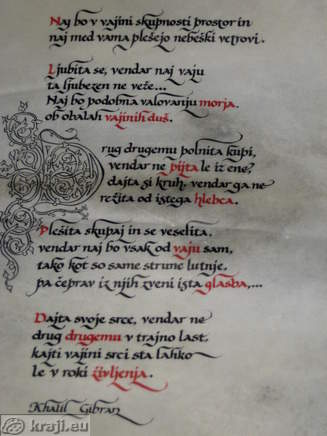 Naj bo v vajini skupnosti prostor in
naj med vama plešejo nebeški vetrovi.
Ljubita se, vendar naj vaju
ta ljubezen ne veže...
Naj bo podobna valovanju morja
ob obalah vajinih duš.
Drug drugemu polnita kupi,
vendar ne pijta le iz ene?
dajta si kruh, vendar ga ne
režita od istega hlebca.
Plešita skupaj in se veselita,
vendar naj bo vsak od vaju sam,
tako kot so same strune lutnje,
pa čeprav iz njih zveni ista glasba,...
Dajta svoje srce, vendar ne
drug drugemu v trajno last,
kajti vajini srci sta lahko
le v roki življenja.
Khalil Gibran
kraji.eu